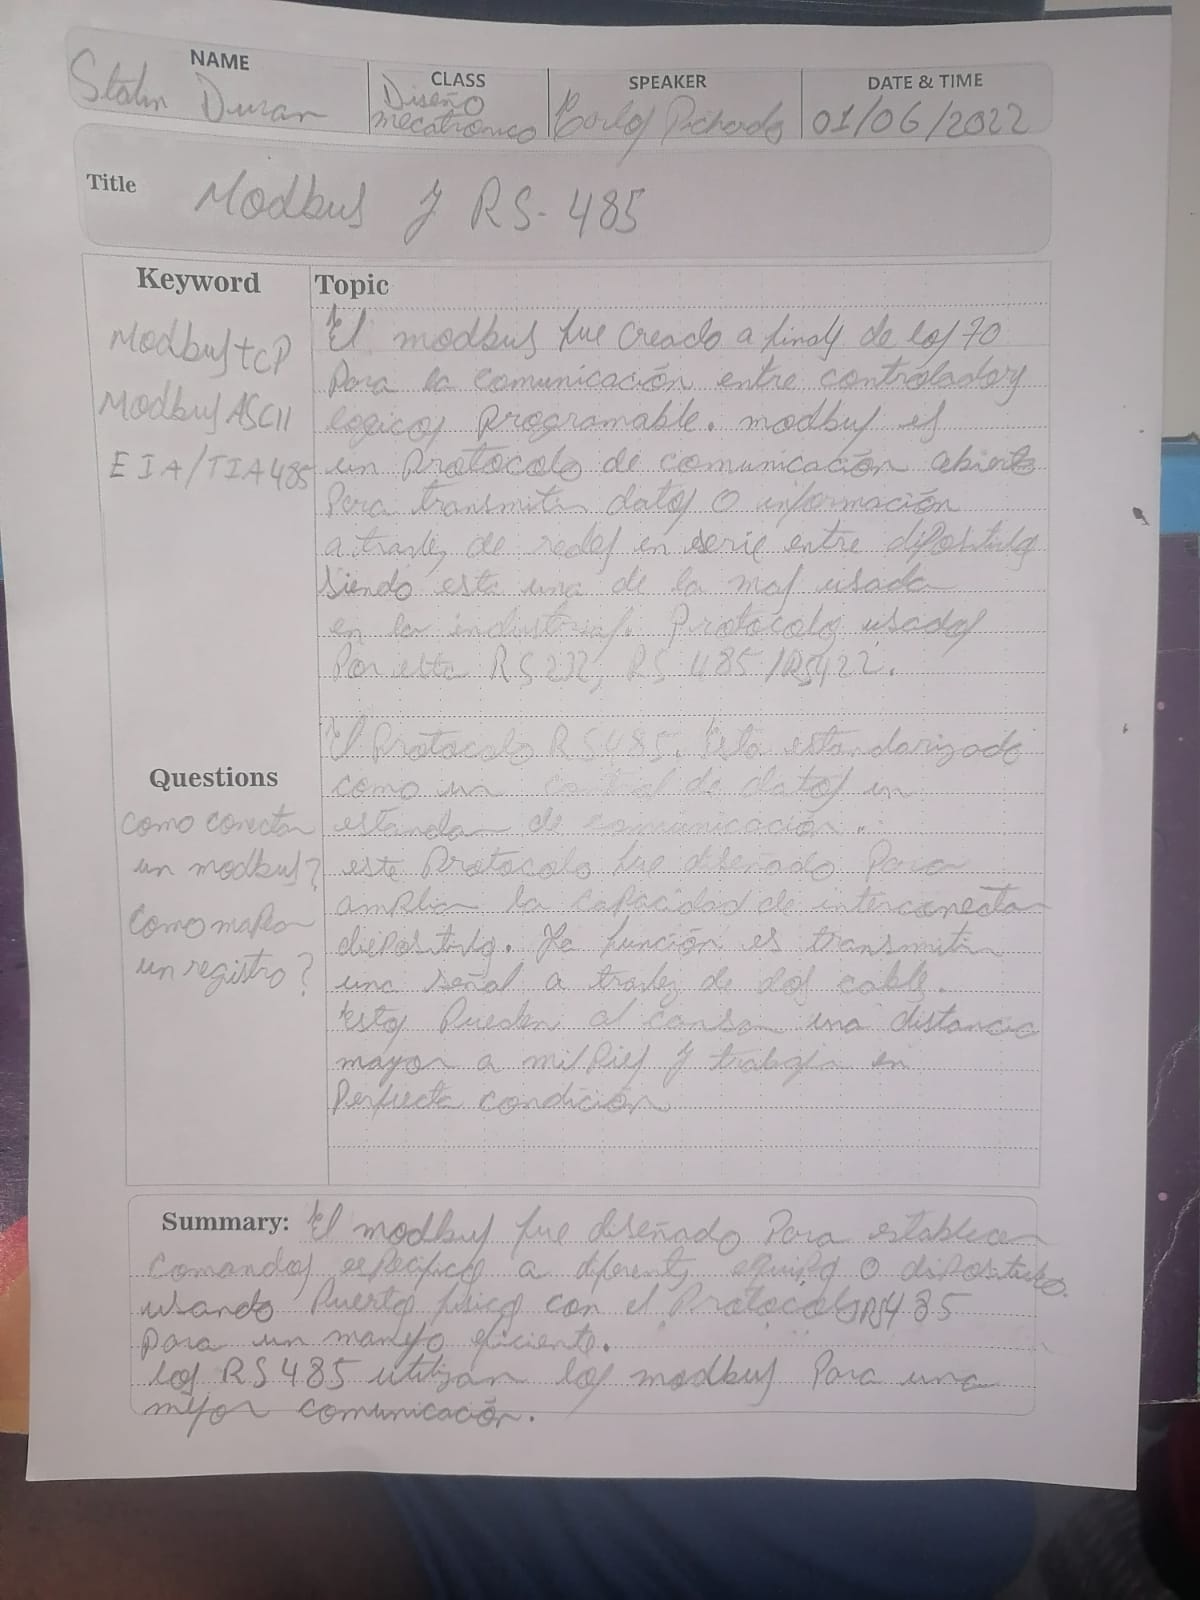 NAME
CLASS
SPEAKER
DATE & TIME
Stalin Duran
Diseño
mecatronico
Carlos Pichardo
01/06/2022
Title
Modbus y RS-485
Keyword
Modbus tcP
Modbus ASCII
EIA/TIA485
Topic
El modbus fue creado a finales de los 70
Para la comunicación entre controladores
logicos programable. modbus es
un Protocolo de comunicación abierto
Para transmitir datos o información
a traves de redes en serie entre dispositivos
siendo esta una de la mas usada
en la industrias. Protocolos usados
Por esta RS232, RS 485 /RS422.
El Protocolo RS485. Esta estandarizado
como un control de datos en
estandar de comunicación.
este Protocolo fue diseñado Para
ampliar la capacidad de interconectar
dispositivos. Su función es transmitir
una señal a travez de dos cables.
Estos Pueden al canzar una distancia
mayor a mil Pies y trabajar en
Perfecta condición
Questions
como conectar
un modbus?
Como mapear
un registro?
Summary: El modbus fue diseñado Para establecer
comandos especificos a diferentes equipos o dispositivos
usando Puertos fisicos con el ProtocoloRS485
Para un manejo eficiente.
los RS485 utilizan los modbus Para una
mejor comunicación.